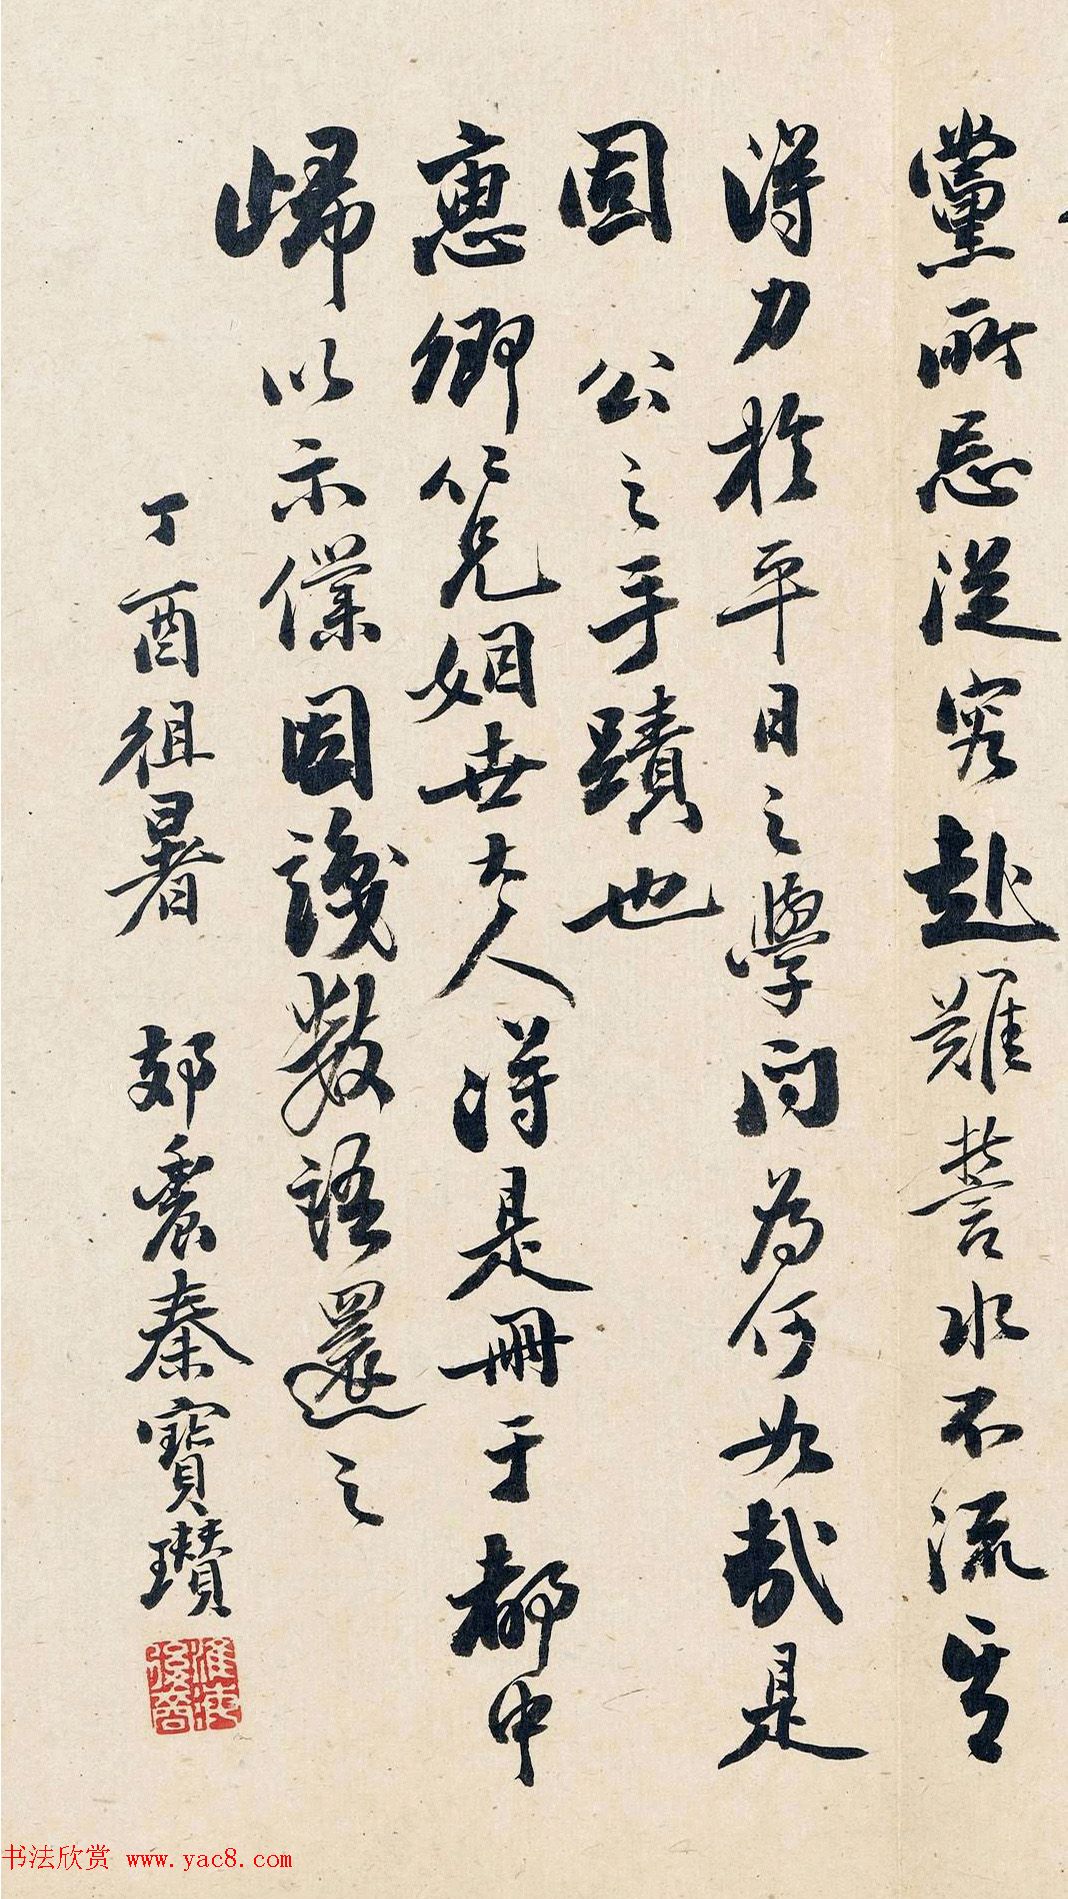 黨所忌從容赴難誓水不流其
得力於平日之學問為何如哉是
固公之手蹟也
惠卿仁兄姻世大人得是冊于都中
歸以示僕因識數語還之
丁酉徂暑 郊農秦寶瓚
淮海後裔
书法欣赏 www.yac8.com